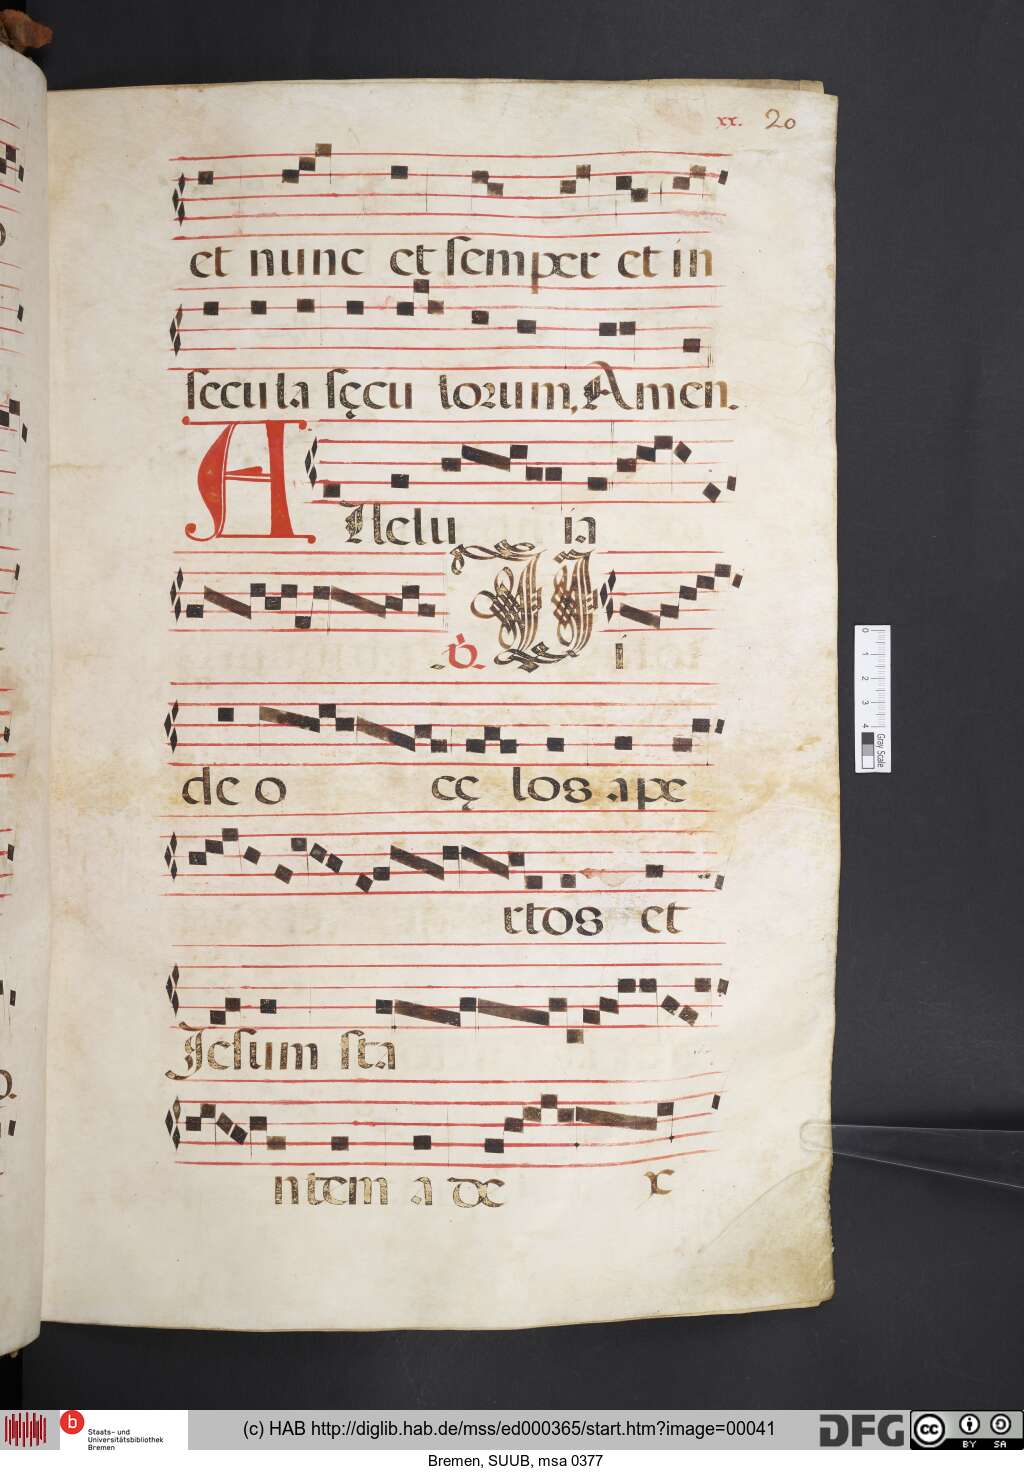 xx. 20
et nunc et semper et in
secula sęcu lorum, Amen.
Allelu ia
. V. Vi
de o cę los ape
rtos et
Jesum sta
ntem a de x
0 1 2 3 4 Gray Scale
b Staats- und Universitätsbibliothek Bremen
(c) HAB http://diglib.hab.de/mss/ed000365/start.htm?image=00041
DFG
cc BY SA
Bremen, SUUB, msa 0377